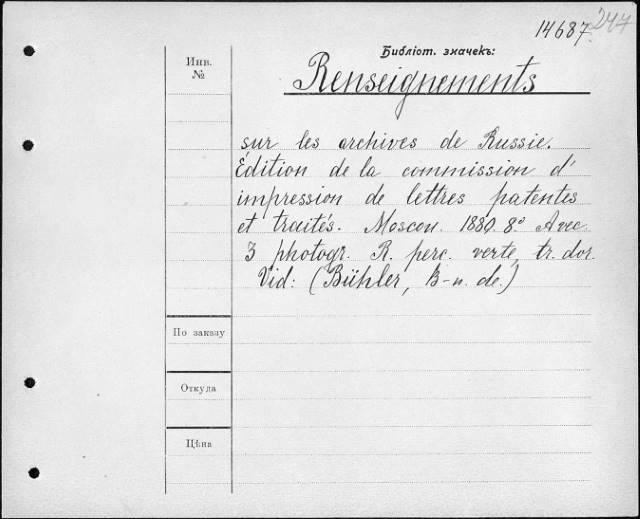 14687.
244
Библіот. значекъ:
Инв.
№
Renseignements
sur les archives de Russie.
Édition de la commission d'
impression de lettres patentes
et traités. Moscou. 1880. 8° Avec
3 photogr. R. perc. verte, tr. dor.
Vid: (Bühler, B-n. de.)
По заказу
Откуда
Цѣна